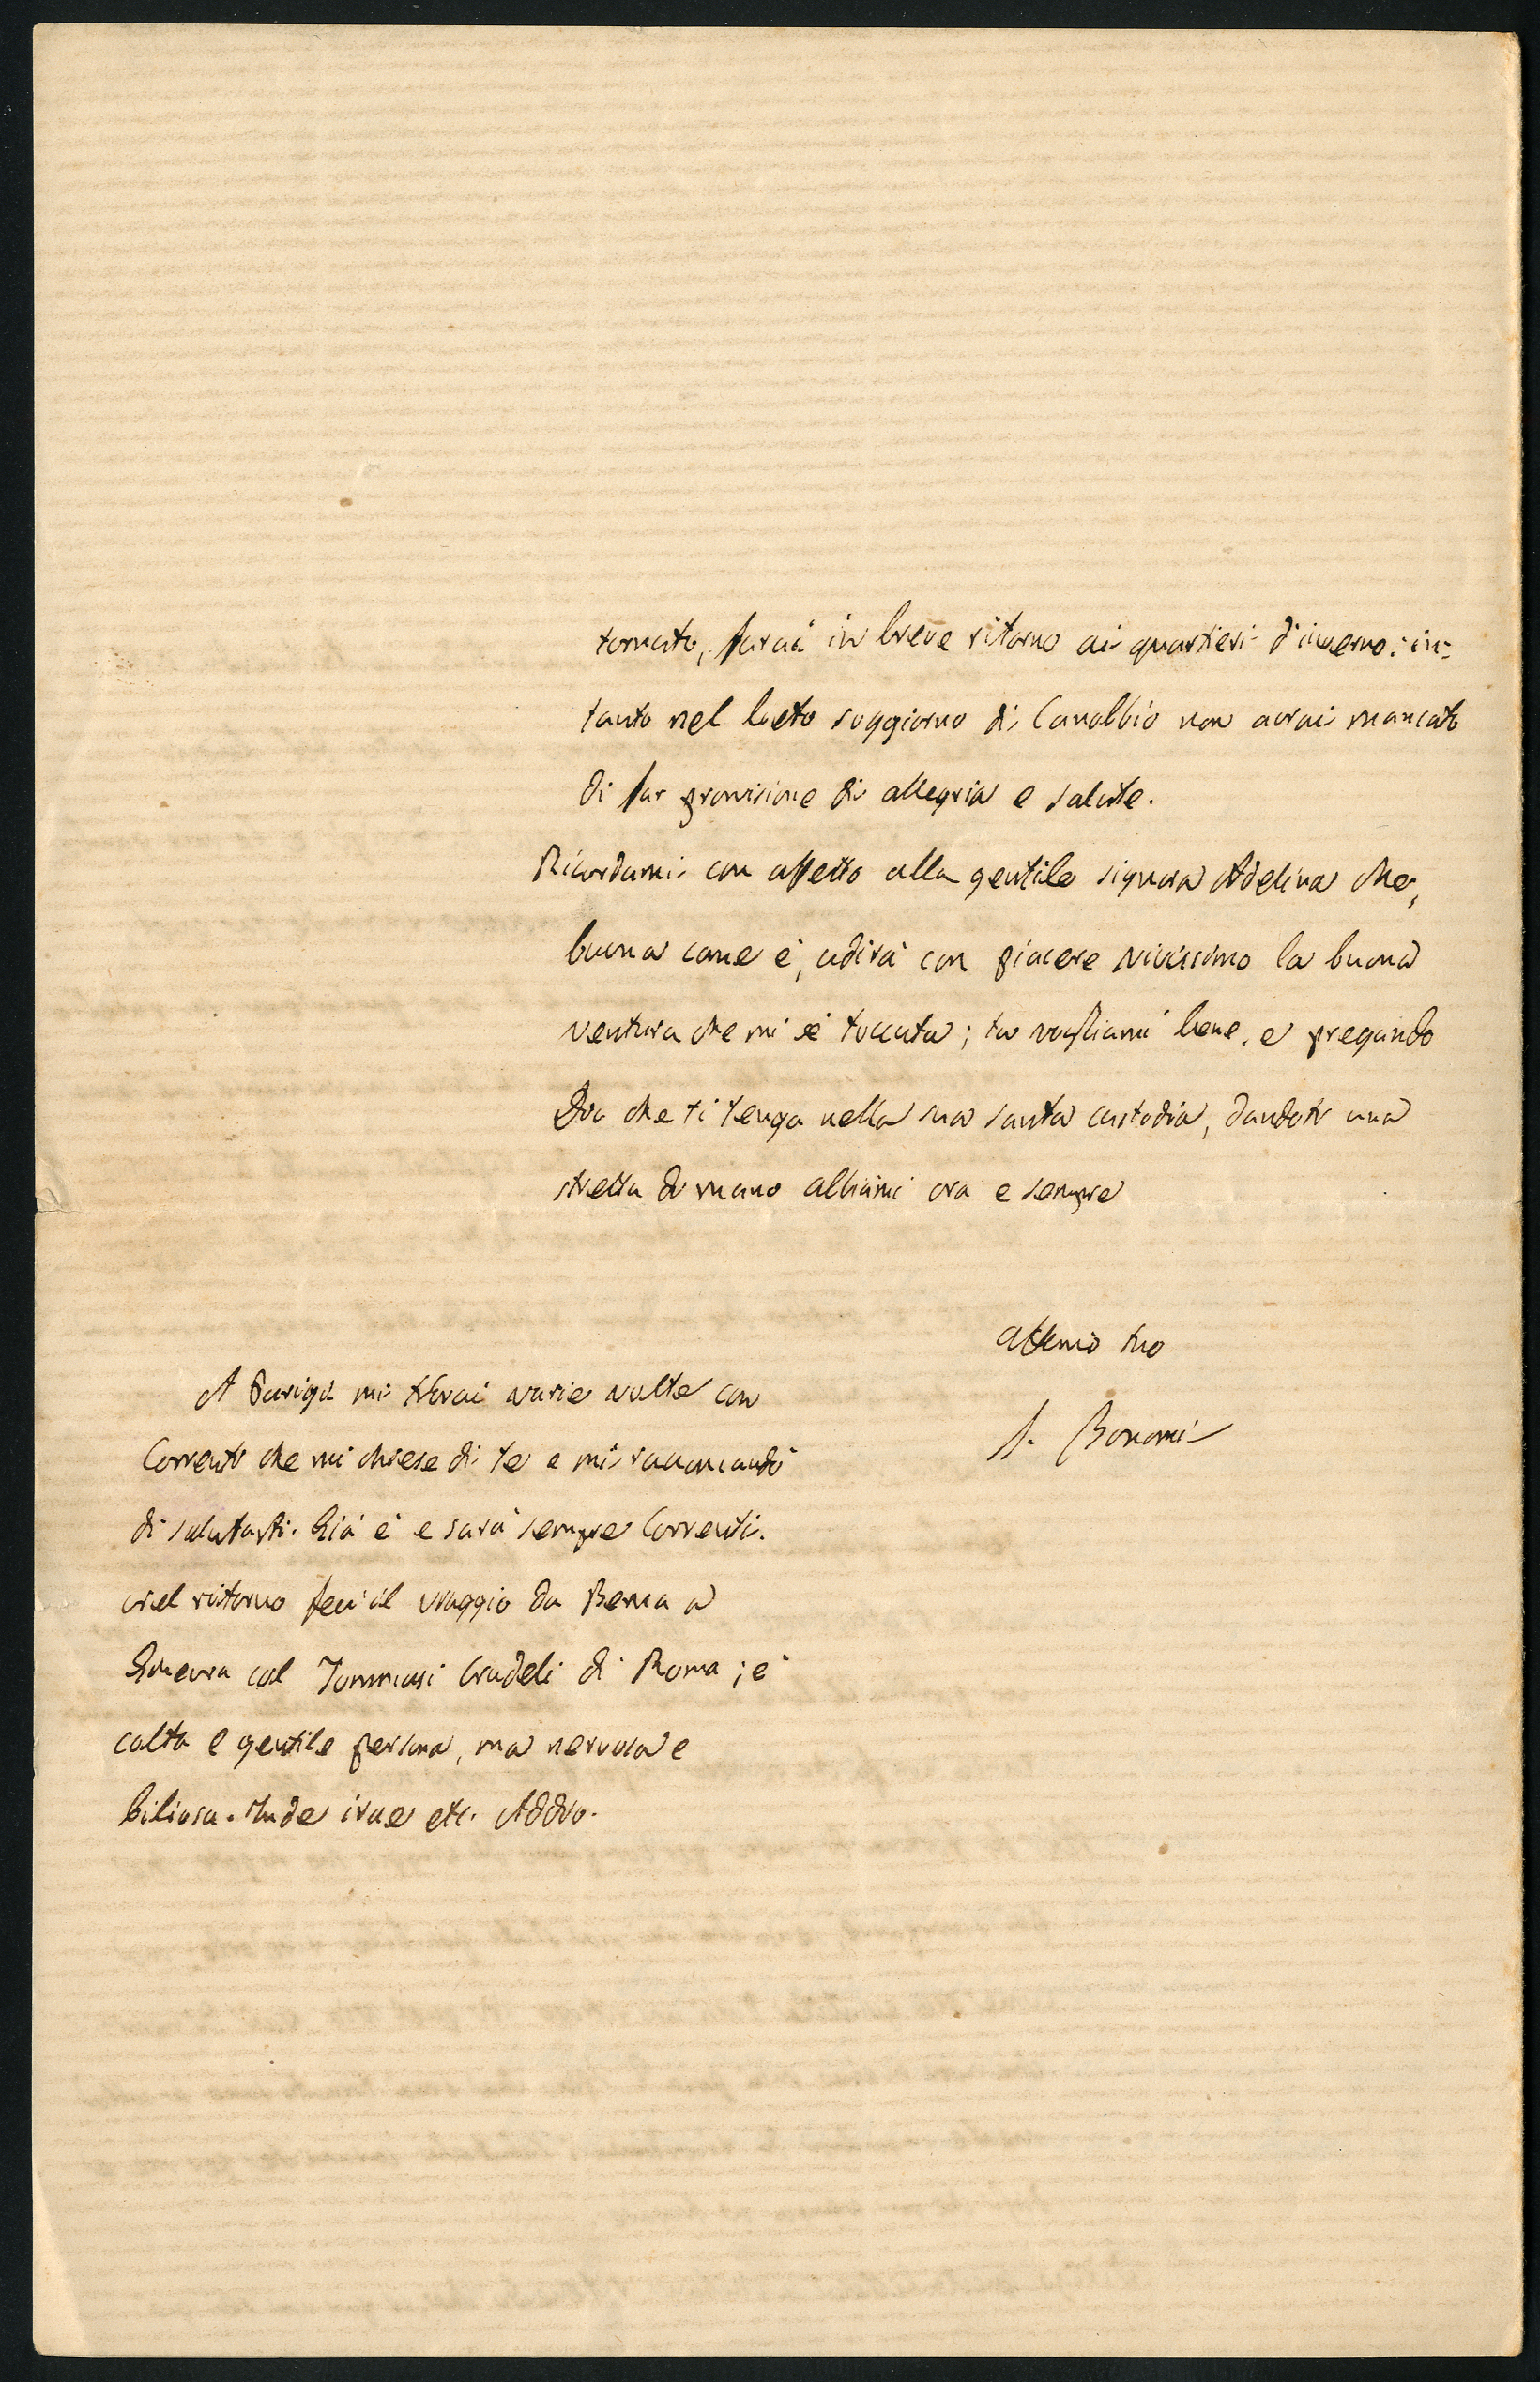 tornato, farai in breve ritorno ai quartieri d'inverno: in-
tanto nel lieto soggiorno di Canobbio non avrai mancato
di far provvisione di allegria e salute.
Ricordami con affetto alla gentile signora Adelina che,
buona come è, udirà con piacere vivissimo la buona
ventura che mi è toccata; tu vogliami bene, e pregando
Dio che ti tenga nella sua santa custodia, dandoti una
stretta di mano abbiami ora e sempre
affemo tuo
S. Bonomi
A Parigi mi trovai varie volte con
Correnti che mi chiese di te e mi raccomandò
di salutarti. Già è e sarà sempre Correnti.
Nel ritorno feci il viaggio da Berna a
Ginevra col Tommasi Crudeli di Roma; è
colta e gentile persona, ma nervosa e
biliosa. Inde irae etc. Addio.